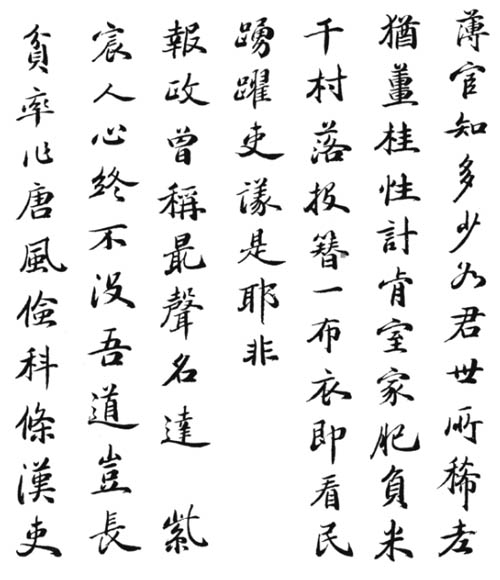 薄官知多少如君世所稀老
猶薑桂性計肯室家肥負米
千村落投簪一布衣即看民
踴躍吏議是耶非
報政曾稱最聲名達 紫
宸人心終不没吾道豈長
貧率作唐風儉科條漢吏